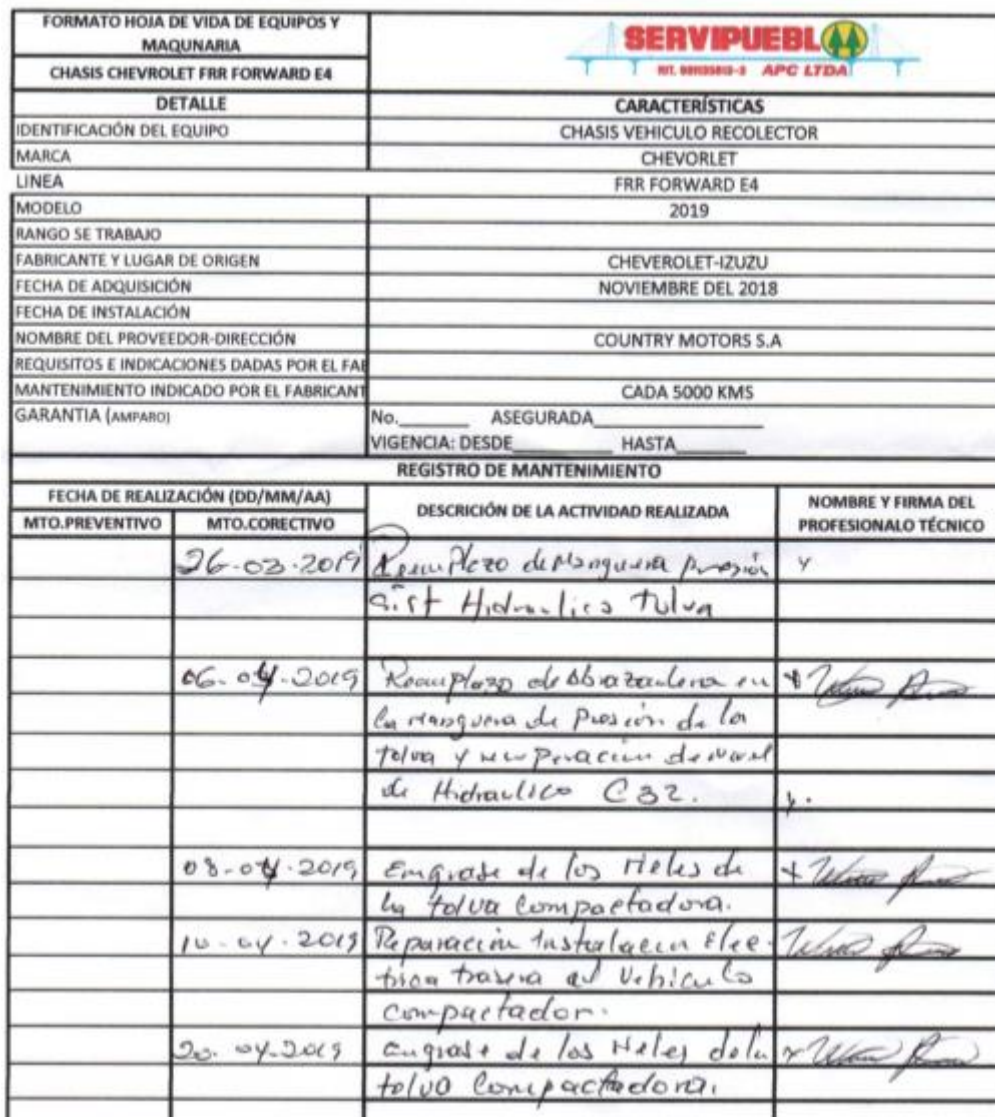 FORMATO HOJA DE VIDA DE EQUIPOS Y
MAQUNARIA
CHASIS CHEVROLET FRR FORWARD E4
SERVIPUEBLO
APC LTDA
DETALLE CARACTERÍSTICAS
IDENTIFICACIÓN DEL EQUIPO CHASIS VEHICULO RECOLECTOR
MARCA CHEVORLET
LINEA FRR FORWARD E4
MODELO 2019
RANGO SE TRABAJO
FABRICANTE Y LUGAR DE ORIGEN CHEVEROLET-IZUZU
FECHA DE ADQUISICIÓN NOVIEMBRE DEL 2018
FECHA DE INSTALACIÓN
NOMBRE DEL PROVEEDOR-DIRECCIÓN COUNTRY MOTORS S.A
REQUISITOS E INDICACIONES DADAS POR EL FAB
MANTENIMIENTO INDICADO POR EL FABRICANT CADA 5000 KMS
GARANTIA (AMPARO) No.________ ASEGURADA____________________
VIGENCIA: DESDE__________ HASTA_______
REGISTRO DE MANTENIMIENTO
FECHA DE REALIZACIÓN (DD/MM/AA) DESCRICIÓN DE LA ACTIVIDAD REALIZADA NOMBRE Y FIRMA DEL PROFESIONALO TÉCNICO
MTO.PREVENTIVO MTO.CORECTIVO
26-03-2019 Reemplazo de Manguera presión
Sist Hidraulico Tolva
06-04-2019 Reemplazo de Abrazadera en
la manguera de Presión de la
tolva y recuperación de nivel
de Hidraulico C32.
08-04-2019 Engrase de los
la tolva Compactadora.
10-04-2019 Reparación Instalación Elec-
trica trasera del Vehiculo
compactador.
20-04-2019 engrase de los de la
tolva Compactadora.